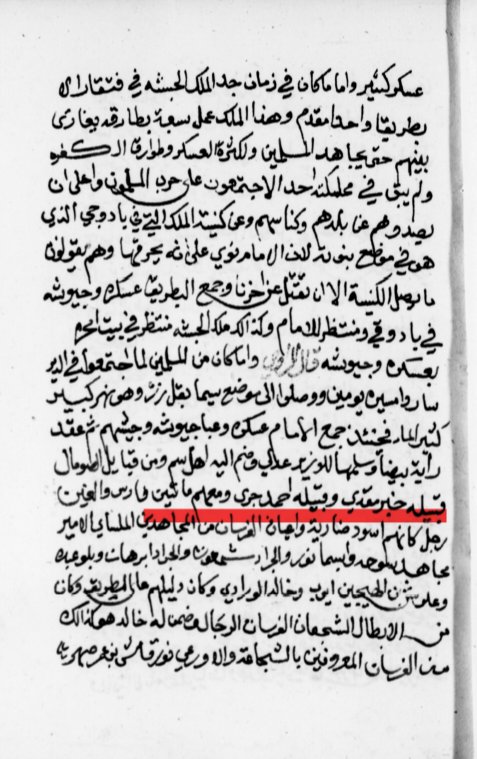 عسكر كثير واما ماكان في زمان جد الملك الحبشة في فتقار الا
بطريقا واحدا مقدم وهذا الملك عمل سبعة بطارقه يغازى
بينهم حتى يجاهد المسلمين ولكثرة العسكر وطوارق الكفره
ولم يبق في مملكته احد الا جتمعون على حرب المسلمون واعلى ان
يصدوهم عن بلدهم وكنائسهم وعن كنيسة الملك التي في بادوجي الذي
هو في موضع لان الامام نوي على انه يحرقها وهم يقولون
ما يصل الكنيسة الا ان نقتل عن اخرنا وجمع البطريق عسكره وجيوشه
في بادوقي ومنتظر للامام وكذالك ملك الحبشه منتظر في بيت
بعسكره وجيوشه قال الراوي واما كان من المسلمين لما اجتمعوا في الدير
ساروا مسيرة يومين ووصلوا الى موضع سيما وهو نهر كبير
كثير الماء فحينئذ جمع الامام عسكره وعبا جيوشه وجيشهم ثم عقد
راية بيضا وسلمها للوزير عدلي وضم اليه اهل سم ومن قبايل الصومال
قبيله حبر مقدي وقبيله احمد جرى ومعهم مائتين فارس والفين
رجل كانهم اسود ضارية واعيان الفرسان من المجاهدين الامير
مجاهد وسيما نور والجراد شمعون والجراد ابرهات
وعلوش بن ايوب وخالد الورادي وكان دليلهم على الطريق وكان
من الابطال الشجعان الفرسان الرجال خالد هو كذالك
من الفرسان المعروفين بالشجاعة والاورعي نور